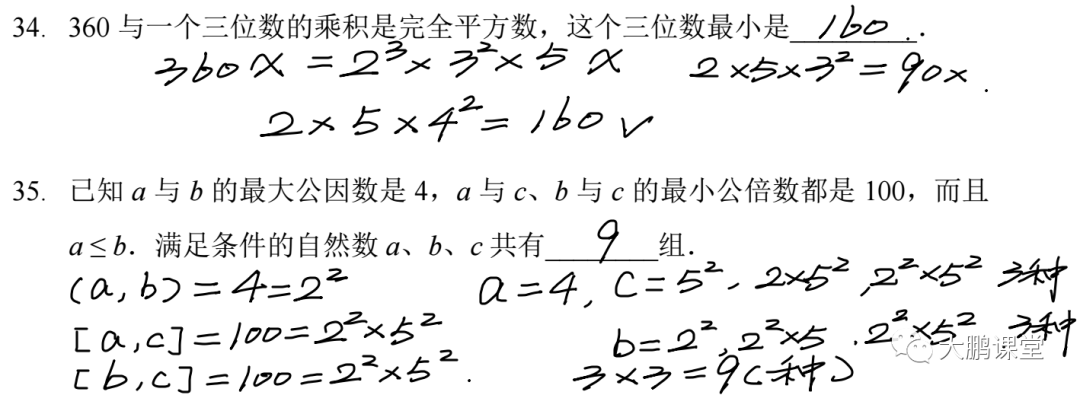 34. 360 与一个三位数的乘积是完全平方数，这个三位数最小是 160 .
360x = 2³×3²×5 x    2×5×3²=90×.
2×5×4²=160 √
35. 已知 a 与 b 的最大公因数是 4，a 与 c、b 与 c 的最小公倍数都是 100，而且
a ≤ b．满足条件的自然数 a、b、c 共有 9 组．
(a,b)=4=2²    a=4, c=5², 2×5², 2²×5² 3种
[a,c]=100=2²×5²    b=2², 2²×5, 2²×5² 3种
[b,c]=100=2²×5².    3×3=9(种)
大鹏课堂